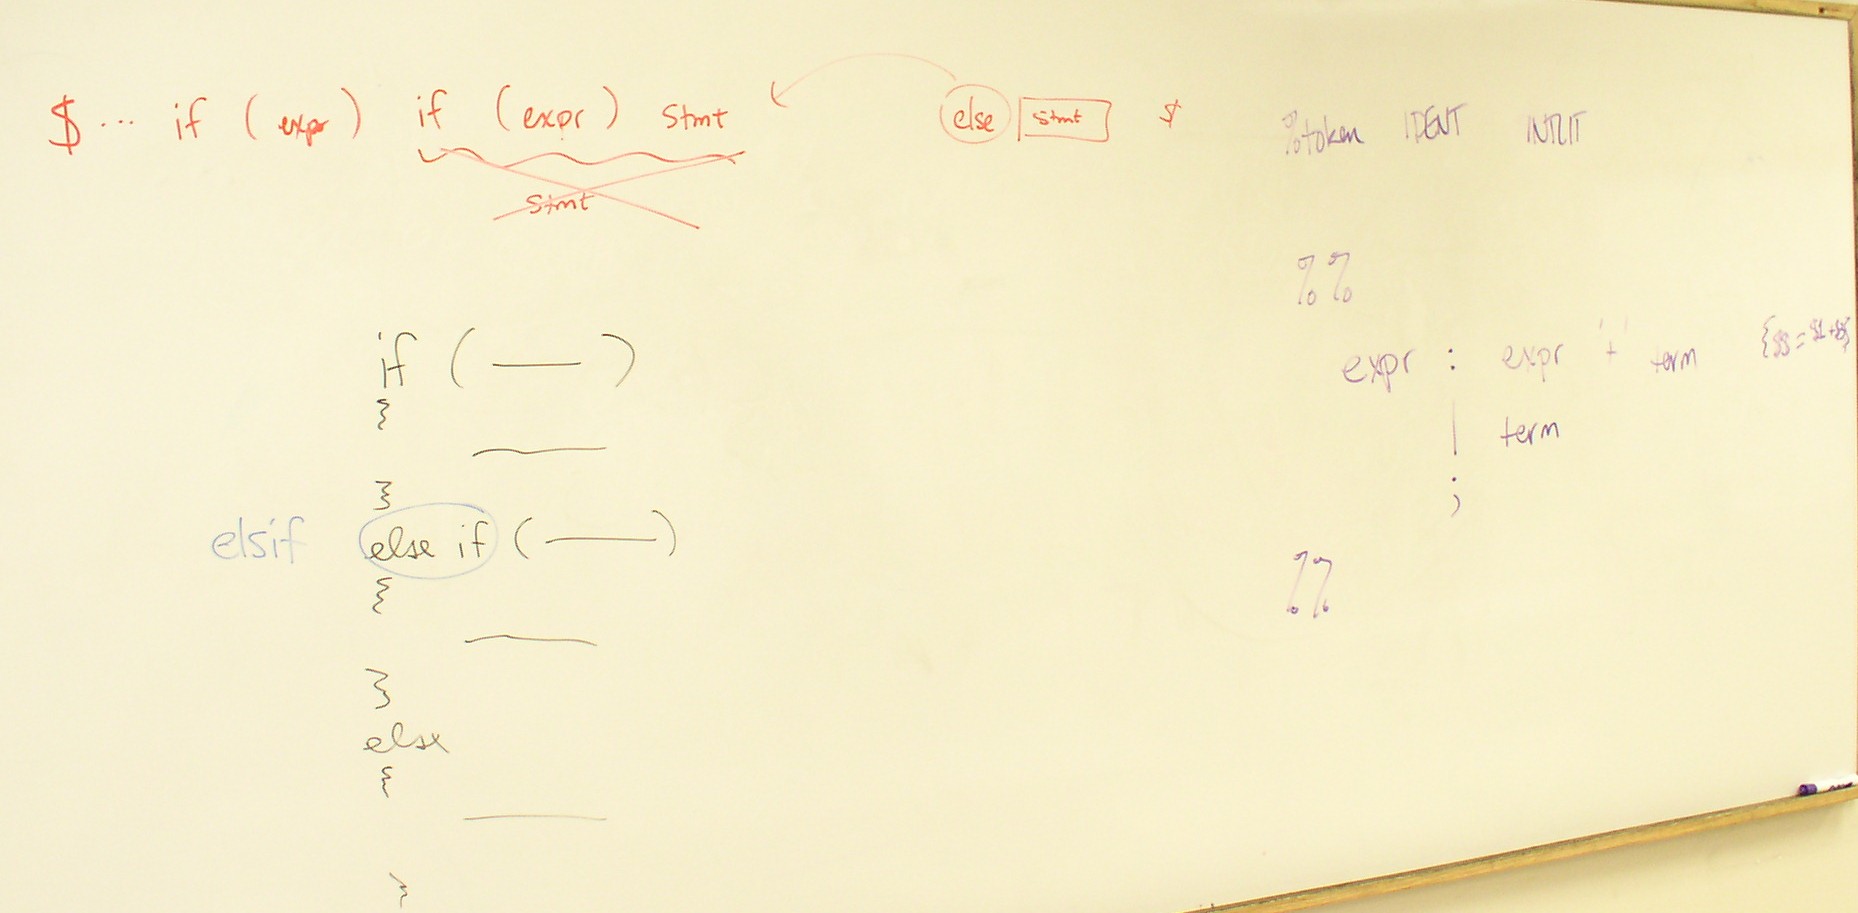 $ ... if ( expr ) if ( expr ) stmt else stmt $
stmt
if ( — )
{
}
elsif else if ( — )
{
}
else
{
}
%token IDENT INTLIT
%%
expr : expr '+' term {$$ = $1 + $3}
| term
;
%%